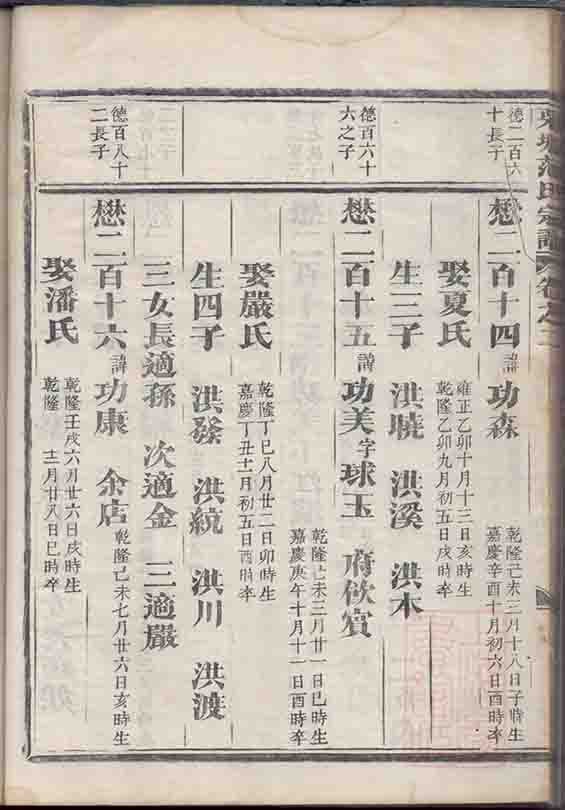 范氏宗譜 卷之二
德二百六
十長子
懋二百十四 諱 功森
乾隆己未三月十八日子時生
嘉慶辛酉十月初六日酉時卒
娶夏氏
雍正乙卯十月十三日亥時生
乾隆乙卯九月初五日戌時卒
生三子 洪曉 洪溪 洪木
德百六十
六之子
懋二百十五 諱 功美 字 球玉 府飲賓
乾隆己未三月廿一日巳時生
嘉慶庚午十月十一日酉時卒
娶嚴氏
乾隆丁巳八月廿二日卯時生
嘉慶丁丑十一月初五日酉時卒
生四子 洪發 洪統 洪川 洪渡
三女長適孫 次適金 三適嚴
德百八十
二長子
懋二百十六 諱 功康 余店
乾隆己未七月廿六日亥時生
娶潘氏
乾隆壬戌六月廿六日戌時生
乾隆 十二月廿八日巳時卒